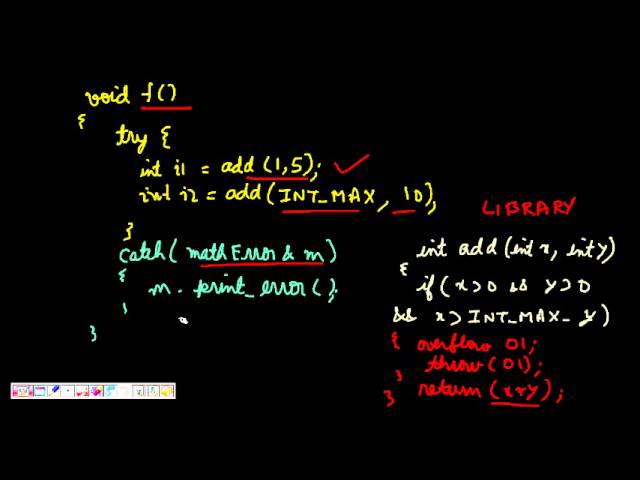 void f()
{
try {
int i1 = add (1,5);
int i2 = add( INT_MAX, 10);
}
catch( mathError & m)
{
m. print_error();
}
}
LIBRARY
int add (int x, int y)
{
if (x>0 && y>0
&& x> INT_MAX_ y)
{ overflow 01;
throw (01);
}
return (x+y);
}